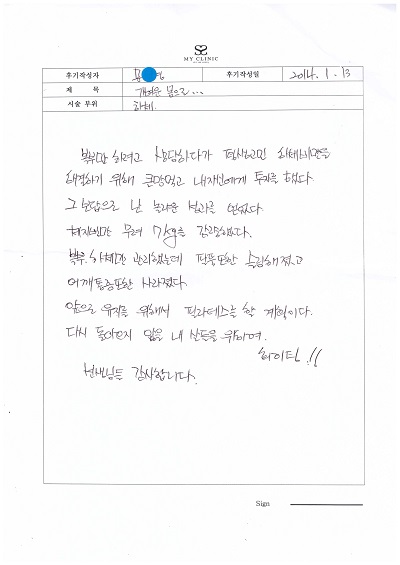 MY CLINIC
후기작성자 후기작성일 2014. 1. 13
제 목 가벼운 몸으로...
시술 부위 하체.
복부만 하려고 상담하다가 평생고민 하체비만을
해결하기 위해 큰맘먹고 내자신에게 투자를 했다.
그 보답으로 난 놀라운 결과를 얻었다.
현재 무려 7kg을 감량했다.
복부, 하체만 관리했는데 팔뚝또한 슬림해졌고
어깨통증또한 사라졌다.
앞으로 유지를 위해서 필라테스를 할 계획이다.
다시 돌아오지 않을 내 살들을 위하여.
화이팅!!
선생님들 감사합니다.
Sign